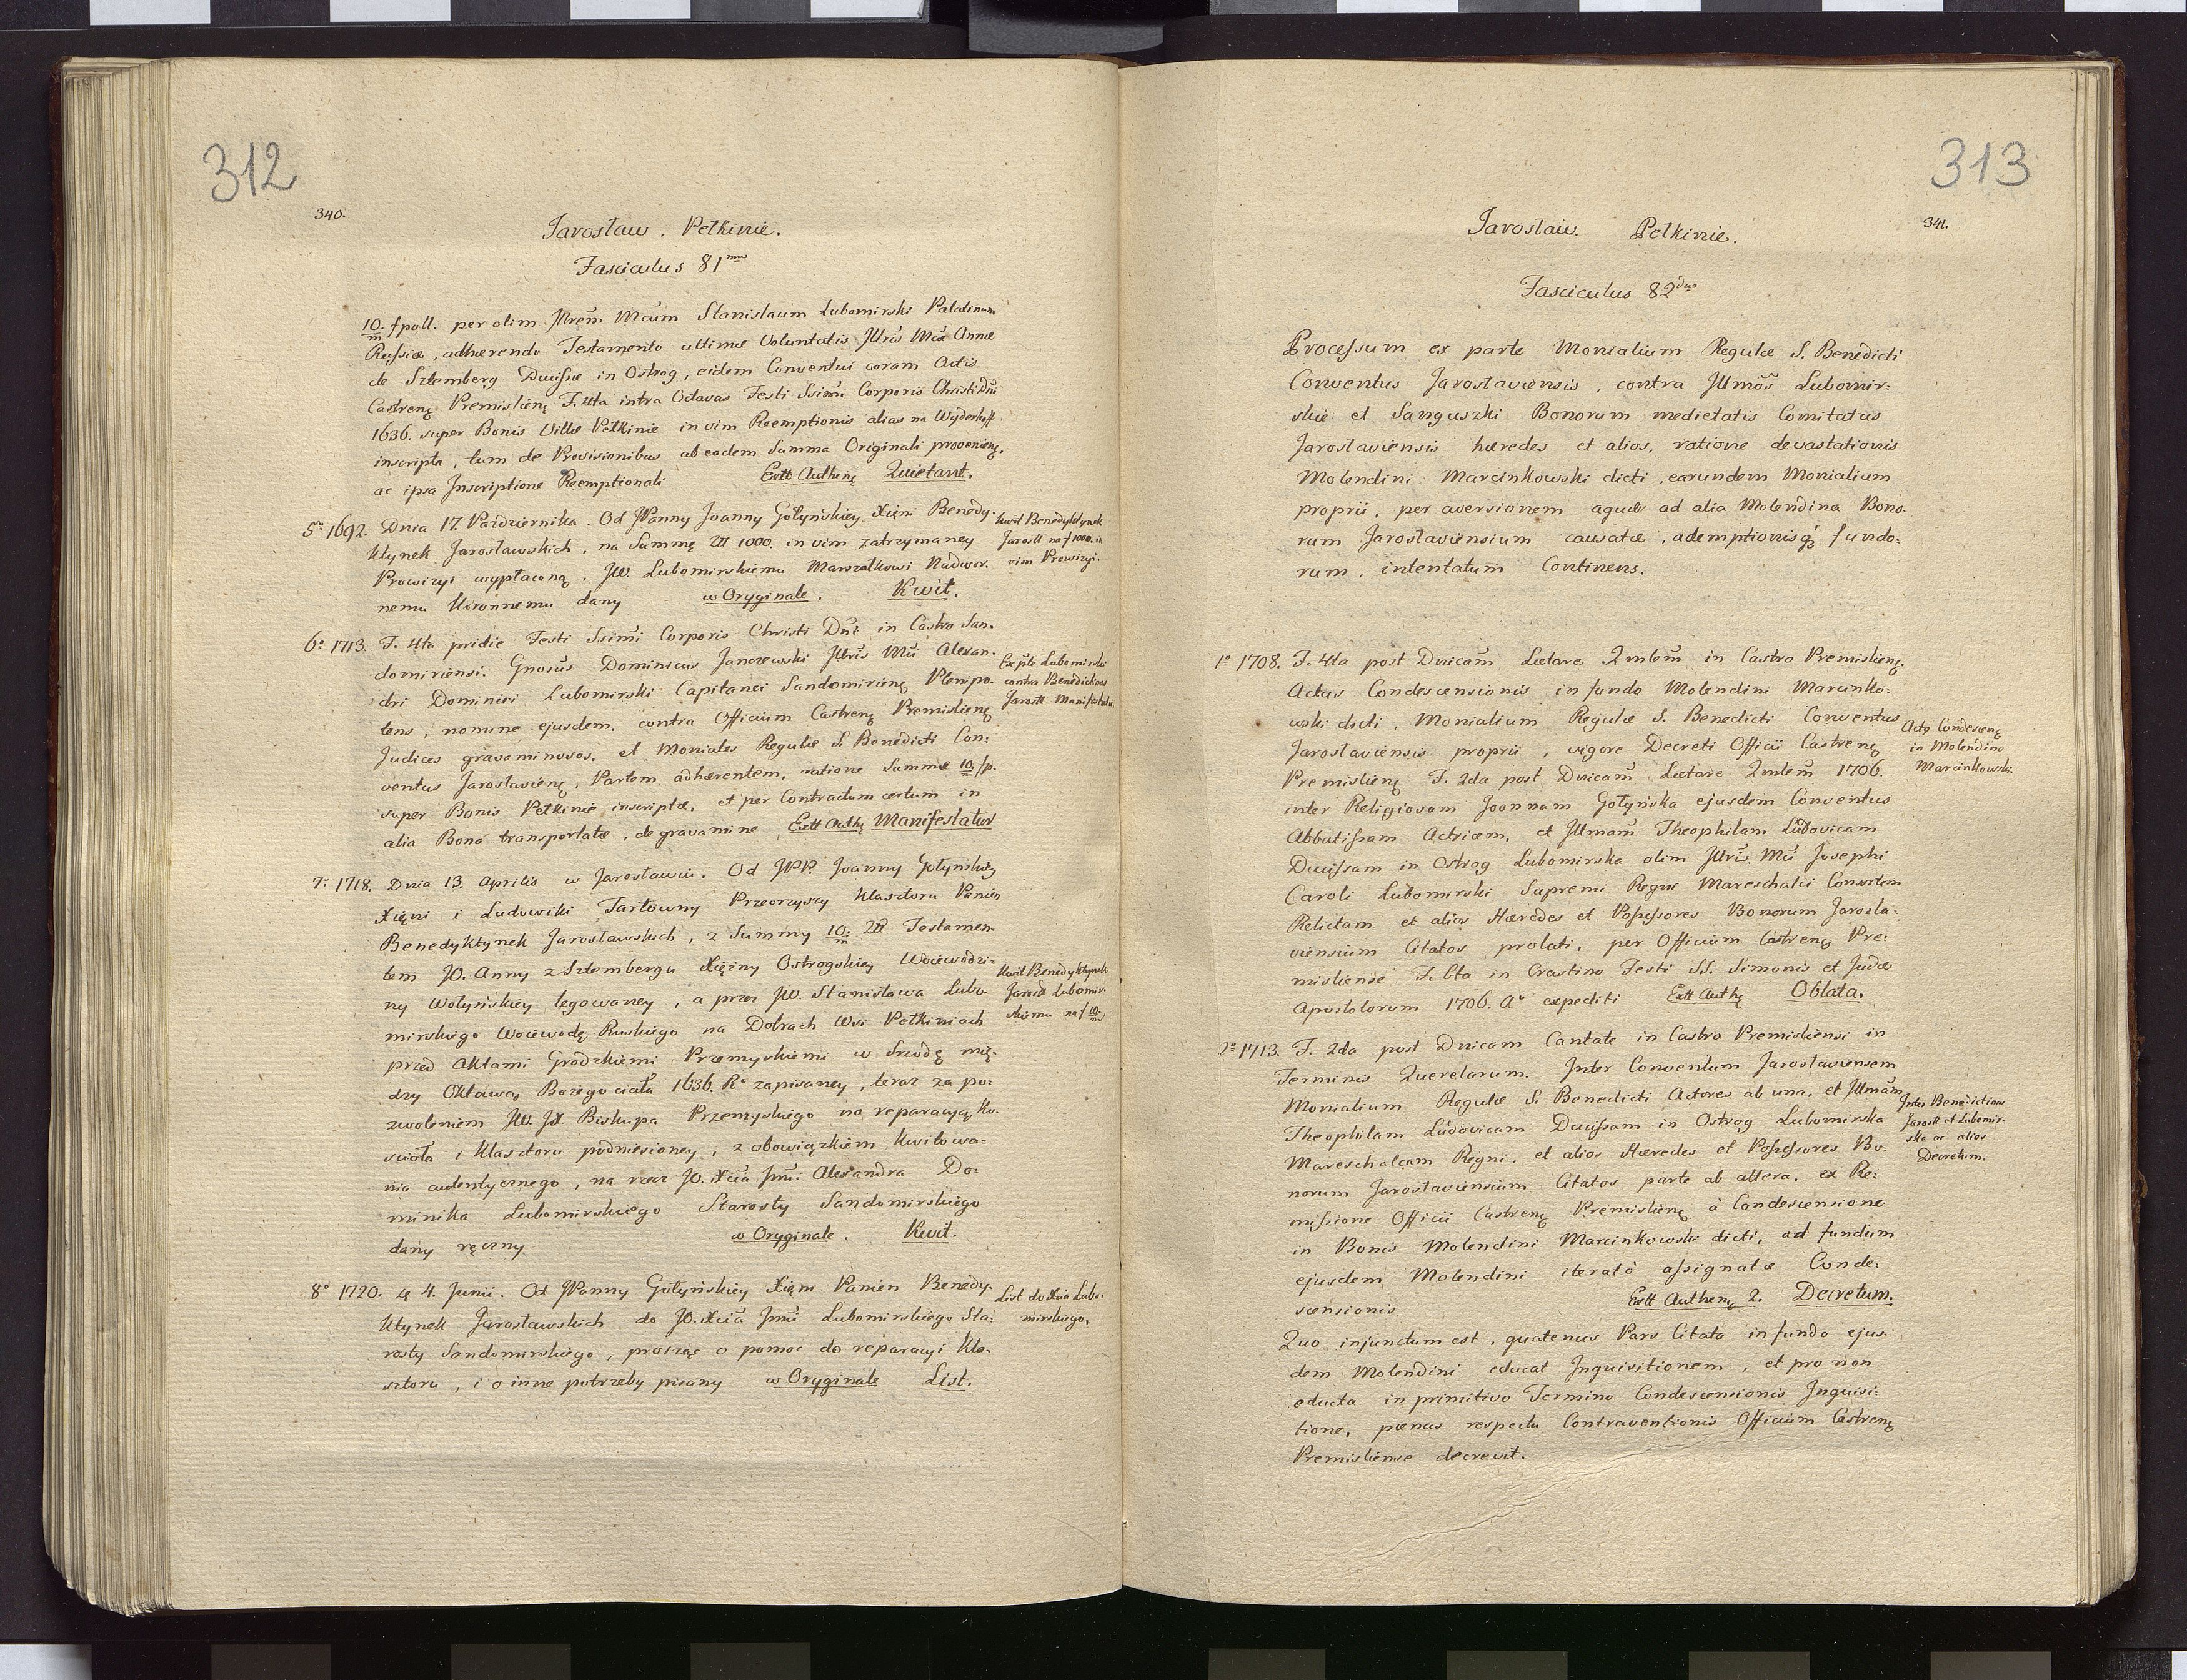 312
340.
Jarosław. Pełkinie.
Fasciculus 81mus
10/m. fpoll. per olim Illrem Mcum Stanislaum Lubomirski Palatinum
Russiæ, adhærendo Testamento ultimæ Voluntatis Illris Mcæ Annæ
de Sztemberg Ducissæ in Ostrog, eidem Conventui coram Actis
Castren Premislien F. 4ta intra Octavas Festi Ssimi Corporis Christi Dni
1636. super Bonis Villæ Pełkinie in vim Reemptionis alias na Wyderkaff
inscripta, tum de Provisionibus ab eadem Summa Originali provenien,
ac ipsa Inscriptione Reemptionali Extt Authen Quietant.
5to 1692. Dnia 17. Października. Od JPanny Joanny Gołyńskiey Xięni Benedy-
ktynek Jarosławskich, na Summę Zł 1000. in vim zatrzymaney
Prowizyi wypłaconą, JW. Lubomirskiemu Marszałkowi Nadwor-
nemu Koronnemu dany w Oryginale. Kwit.
Kwit Benedyktynek
Jarosłł na f 1000. in
vim Prowizyi.
6o 1713. F. 4ta pridie Festi Ssimi Corporis Christi Dni in Castro San-
domiriensi. Gnosus Dominicus Janczewski Illris Mci Alexan-
dri Dominici Lubomirski Capitanei Sandomirien Plenipo-
tens, nomine ejusdem, contra Officium Castren Premislien
Judices gravaminosos, et Moniales Regulæ S. Benedicti Con-
ventus Jaroslavien, Partem adhærentem, ratione Summæ 10/m fp.
super Bonis Pełkinie inscriptæ, et per Contractum certum in
alia Bona transportatæ, de gravamine Extt Auth Manifestatur
Ex pte Lubomirski
contra Benedictinas
Jarosłł Manifestatio.
7o 1718. Dnia 13. Aprilis w Jarosławiu. Od JPP. Joanny Gołyńskiey
Xięni i Ludowiki Tarłowny Przeoryszy Klasztoru Panien
Benedyktynek Jarosławskich, z Summy 10/m Zł Testamen-
tem JO. Anny z Sztembergu Xiężny Ostrogskiey Woiewodzi-
ny Wołyńskiey legowaney, a przez JW. Stanisława Lubo-
mirskiego Woiewodę Ruskiego na Dobrach Wsi Pełkiniach
przed Aktami Grodzkiemi Przemyskiemi w Srzodę mię-
dzy Oktawą Bożego ciała 1636. Ro zapisaney, teraz za po-
zwoleniem JW. JX. Biskupa Przemyskiego na reparacyą Ko-
scioła i Klasztoru podniesioney, z obowiązkiem kwitowa-
nia autentycznego, na rzecz JO. Xcia Jmci Alexandra Do-
minika Lubomirskiego Starosty Sandomirskiego
dany ręczny w Oryginale. Kwit.
Kwit Benedyktynek
Jarosłł Lubomir-
skiemu na f 10/m
8o 1720. 4. Junii. Od JPanny Gołyńskiey Xięni Panien Benedy-
ktynek Jarosławskich do JO. Xcia Jmci Lubomirskiego Sta-
rosty Sandomirskiego, prosząc o pomoc do reparacyi Kla-
sztoru, i o inne potrzeby pisany w Oryginale List.
List do Xcia Lubo-
mirskiego.
313
341.
Jarosław. Pełkinie.
Fasciculus 82dus
Processum ex parte Monialium Regulæ S. Benedicti
Conventus Jaroslaviensis, contra Illmos Lubomir-
skie et Sanguszki Bonorum medietatis Comitatus
Jaroslaviensis hæredes et alios, ratione devastationis
Molendini Marcinkowski dicti, earundem Monialium
proprii, per aversionem aquæ ad alia Molendina Bono-
rum Jaroslaviensium causatæ, ademptionisq3 fundo-
rum, intentatum Continens.
1o 1708. F. 4ta post Dnicam Lætare Qmlem in Castro Premislien.
Actus Condescensionis in fundo Molendini Marcinko-
wski dicti, Monialium Regulæ S. Benedicti Conventus
Jaroslaviensis proprii, vigore Decreti Officii Castren
Premislien F. 2da post Dnicam Lætare Qmlem 1706.
inter Religiosam Joannam Gołyńska ejusdem Conventus
Abbatissam Actricem, et Illmam Theophilam Ludovicam
Ducissam in Ostrog Lubomirska olim Illris Mci Josephi
Caroli Lubomirski Supremi Regni Mareschalci Consortem
Relictam et alios Hæredes et Possessores Bonorum Jarosla-
viensium Citatos prolati, per Officium Castren Pre-
misliense F. 6ta in Crastino Festi SS. Simonis et Judæ
Apostolorum 1706. Ao expediti Extt Auth Oblata.
Acts Condescen
in Molendino
Marcinkowski.
2o 1713. F. 2da post Dnicam Cantate in Castro Premisliensi in
Terminis Querelarum. Inter Conventum Jaroslaviensem
Monialium Regulæ S. Benedicti Actores ab una, et Illmam
Theophilam Ludovicam Ducissam in Ostrog Lubomirska
Mareschalcam Regni, et alios Hæredes et Possessores Bo-
norum Jaroslaviensium Citatos parte ab altera, ex Re-
missione Officii Castren Premislien à Condescensione
in Bonis Molendini Marcinkowski dicti, ad fundum
ejusdem Molendini iterató assignatæ Conde-
scensionis Extt Authen 2. Decretum.
Inter Benedictinas
Jarosłł et Lubomir-
ska ac alios
Decretum.
Quo injunctum est, quatenus Pars Citata in fundo ejus-
dem Molendini educat Inquisitionem, et pro non
educta in primitivo Termino Condescensionis Inquisi-
tione, pœnas respectu Contraventionis Officium Castren
Premisliense decrevit.